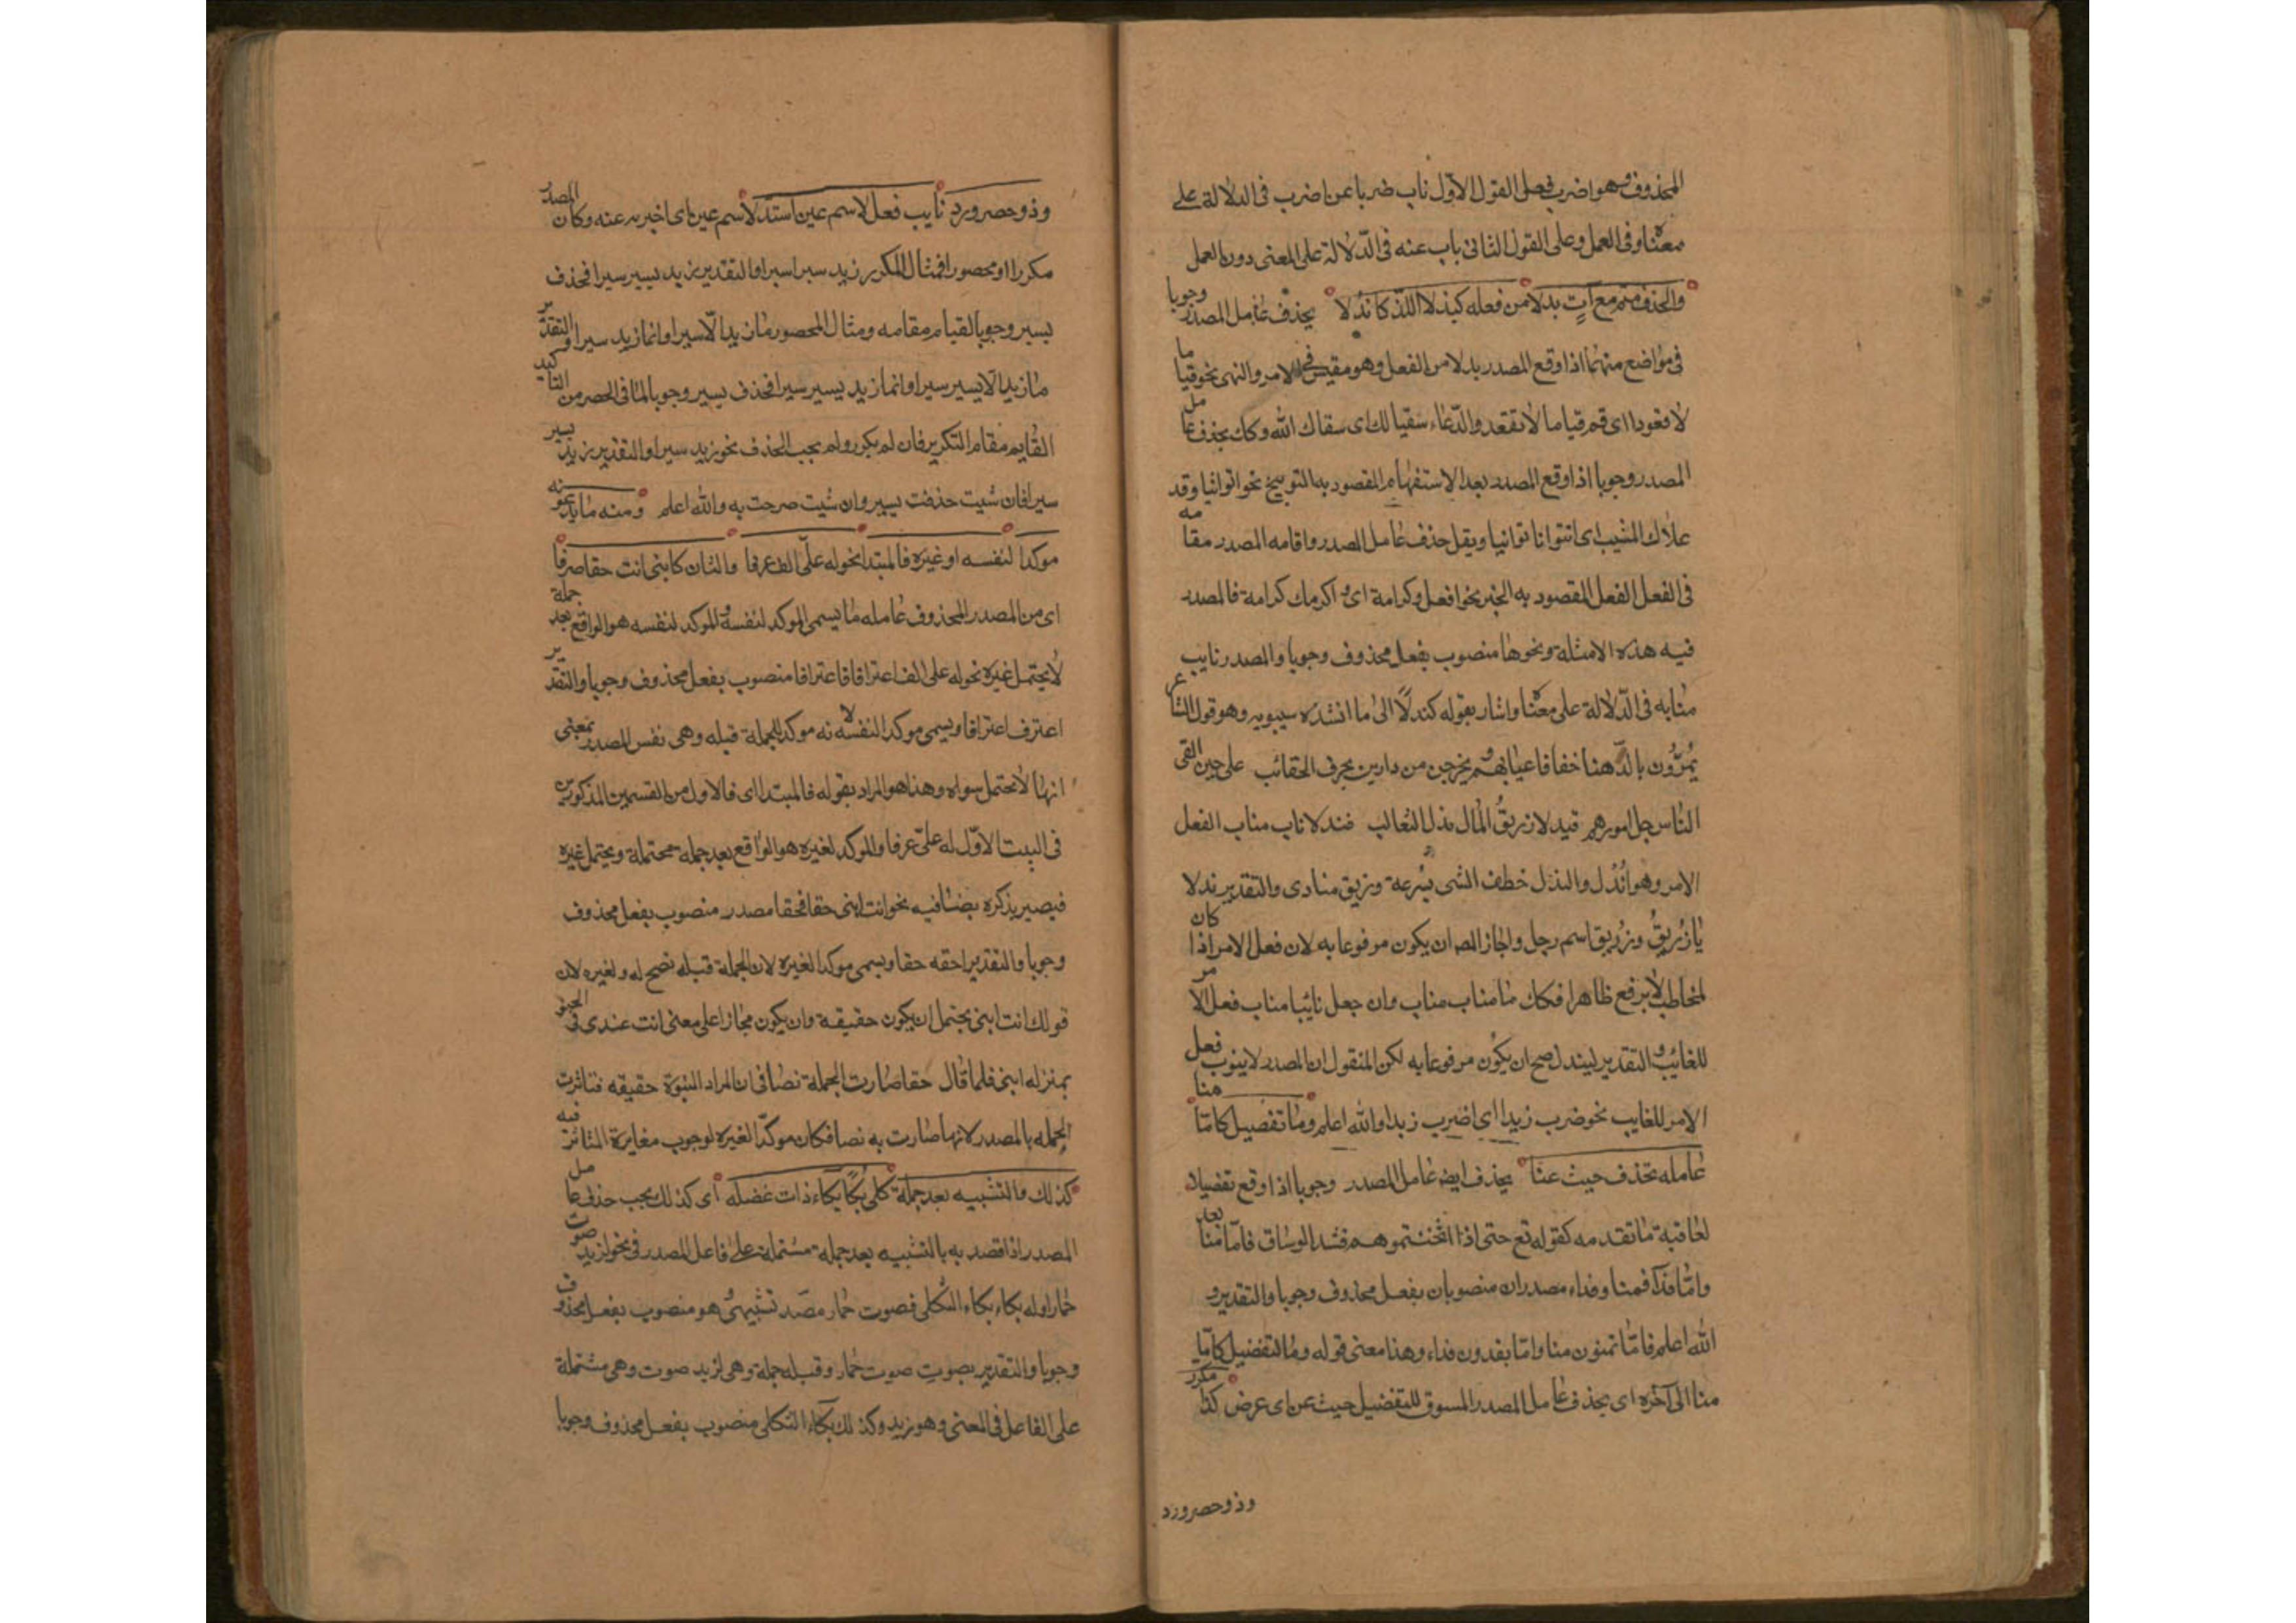 المحذوف وهو اضرب فعلى القول الاول ناب ضربا عن اضرب فى الدلالة على
معناه وفى العمل وعلى القول الثانى باب عنه فى الدّلالة على المعنى دون العمل
والحذف حتم مع آتٍ بدلا من فعله كندلا اللّذ كاندلا يحذف عامل المصدر وجوبا
فى مواضع منها اذا وقع المصدر بدلا من الفعل وهو مقيس فى الامر والنهى نحو قياما
لا قعودا اى قم قياما لا تقعد والدّعاء سقيا لك اى سقاك الله وكك يحذف عامل
المصدر وجوبا اذا وقع المصدر بعد الاستفهام المقصود به التوبيخ نحو اتوانيا وقد
علاك المشيب اى اتتوانا توانيا ويقل حذف عامل المصدر واقامه المصدر مقامه
فى الفعل الفعل المقصود به الخبر نحو افعل وكرامة اى و اكرمك كرامة فالمصدر
فيه هذه الامثلة ونحوها منصوب بفعل محذوف وجوبا والمصدر نايب
منابه فى الدّلالة على معناه واشار بقوله كندلًا الى ما انشده سيبويه وهو قول الشاعر
يُمرّون بالدّهنا خفافا عيابهم ويخرجن من دارين بجرف الحقائب على حين القى
النّاس جل امورهم فيدلا زريقُ المال ندل الثعالب فندلا ناب مناب الفعل
الامر وهو اُندُل والندل خطف الشى بسُرعة وزريق منادى والتقدير ندلا
يا زُريقُ وزُريق اسم رجل واجاز المص ان يكون مرفوعا به لان فعل الامر اذا كان
لمخاطب لا يرفع ظاهرا فكك ما مناب مناب وان جعل نائبا مناب فعل الامر
للغائب و التقدير ليندل صح ان يكون مرفوعا به لكن المنقول ان المصدر لا ينوب فعل
الامر للغايب نحو ضرب زيدا اى اضرب زيدا والله اعلم وما تفصيل كامّا منا
عامله يحذف حيث عنّا يحذف ايضه عامل المصدر وجوبا اذا وقع تفصيلا
لعاقبة ما تقدمه كقوله تع حتى اذا اثخنتموهم فشد الوساق فامّا منا بعد
وامّا فدآ فمنا وفداء مصدران منصوبان بفعل محذوف وجوبا والتقدير و
الله اعلم فامّا تمنون منا وامّا بفدون فداء وهذا معنى قوله وما لتفضيل كامّا
منا الى آخره اى يحذف عامل المصدر المسوق للتفضيل حيث عن اى عرض كذا مكرر
وذو حصر ورد
وذو حصر ورد نايب فعل لاسم عين استند لاسم عين اى اخبر به عنه وكان المصدر
مكررا او محصورا فمثال المكرر زيد سيرا سيرا والتقدير زيد يسير سيرا فحذف
يسير وجوبا لقيام مقامه ومثال المحصور ما زيد الّا سيرا وانما زيد سيرا والتقدير
ما زيد الّا يسير سيرا وانما زيد يسير سيرا فحذف يسير وجوبا لما فى الحصر من التاكيد
القايم مقام التكرير فان لم يكرر ولم يجب الحذف نحو زيد سيرا والتقدير زيد يسير
سيرا فان شيت حذفت يسير وان شيت صرحت به والله اعلم ومنه ما يدعونه
موكدا لنفسه او غيره فالمبتدا نحو له علىّ الف عرفا والثان كابنى انت حقا صرفا
اى من المصدر المحذوف عامله ما يسمى الموكد لنفسه و الموكد لنفسه هو الواقع بعد جملة
لا يحتمل غيره نحو له على الف اعترافا فاعترافا منصوب بفعل محذوف وجوبا والتقدير
اعترف اعترافا ويسمى موكدا لنفسه لانه موكد للجملة قبله وهى نفس المصدر بمعنى
انها لا تحتمل سواه وهذا هو المراد بقوله فالمبتدا اى فالاول من القسمين المذكورين
فى البيت الاوّل له علىّ عرفا والموكد لغيره هو الواقع بعد جمله محتملة ويحتمل غيره
فيصير بذكره نصّا فيه نحو انت ابنى حقا فحقا مصدر منصوب بفعل محذوف
وجوبا والتقدير احقه حقا ويسمى موكدا لغيره لان الجملة قبله تصح له ولغيره لان
قولك انت ابنى يحتمل ان يكون حقيقة وان يكون مجازا على معنى انت عندى فى الحنو
بمنزله ابنى فلما قال حقا صارت الجملة نصا فى ان المراد البنوة حقيقه فتاثرت
الجمله بالمصدر لانها صارت به نصا فكان موكدّا لغيره لوجوب مغايرة المتاثر فيه
كذلك والتشبيه بعد جملة كلى بُكًا بكاء ذات عضله اى كذلك يجب حذف عامل
المصدر اذا قصد به بالتشبيه بعد جملة مشتملة على فاعل المصدر فى نحو لزيد صوت
حمار او له بكاء بكاء الثكلى فصوت حمار مصدر تشبيهى هو منصوب بفعل محذوف
وجوبا والتقدير بصوت صوت حمار وقبله جملة وهى لزيد صوت وهى مشتملة
على الفاعل فى المعنى وهو زيد وكذلك بكاء الثكلى منصوب بفعل محذوف وجوبا